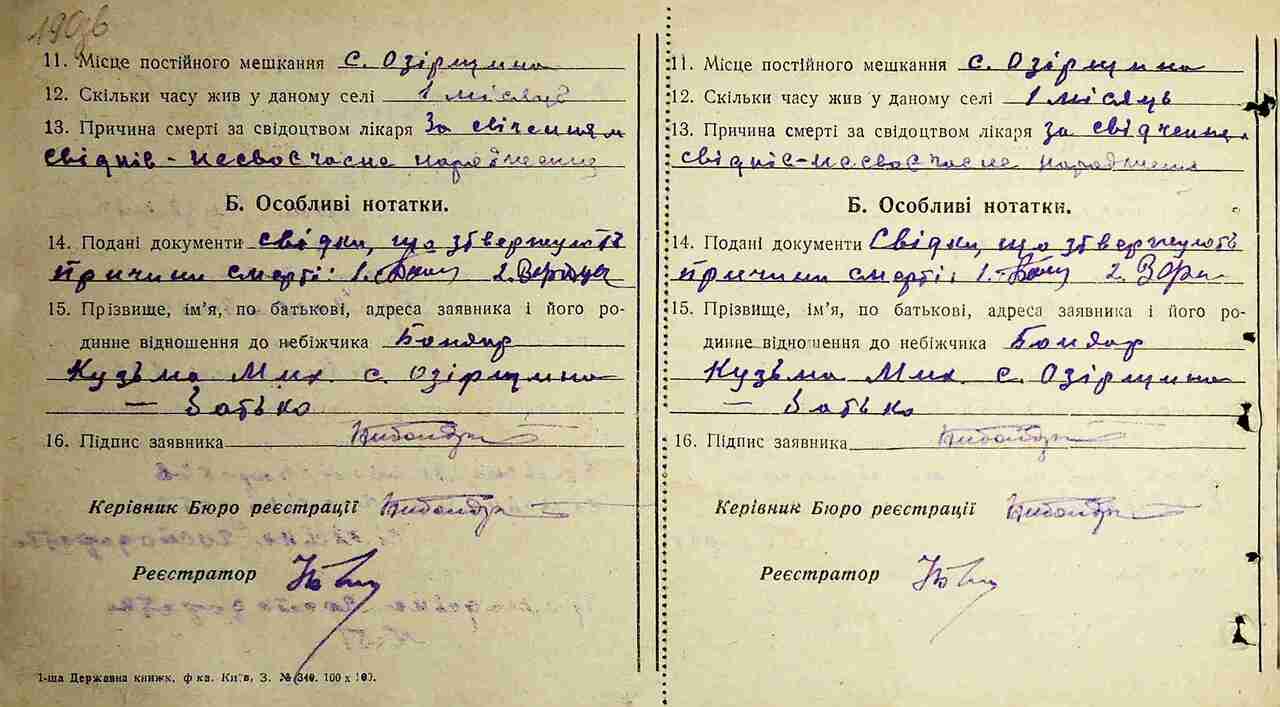 190зв
11. Місце постійного мешкання с. Озірщина
12. Скільки часу жив у даному селі 1 місяць
13. Причина смерті за свідоцтвом лікаря За свіченням
свідків - несвоєчасне народження
Б. Особливі нотатки.
14. Подані документи свідки, що збвержують
причини смерті: 1. 2.
15. Прізвище, ім'я, по батькові, адреса заявника і його ро-
динне відношення до небіжчика Бондар
Кузьма Мих. с. Озірщина
— батько
16. Підпис заявника
Керівник Бюро реєстрації
Реєстратор
1-ша Державна книжк. ф ка. Київ, З. № 340. 100 х 100.
11. Місце постійного мешкання с. Озірщина
12. Скільки часу жив у даному селі 1 місяць
13. Причина смерті за свідоцтвом лікаря за свідчення
свідків - несвоєчасне народження
Б. Особливі нотатки.
14. Подані документи Свідки, що збвержують
причини смерті: 1. 2.
15. Прізвище, ім'я, по батькові, адреса заявника і його ро-
динне відношення до небіжчика Бондар
Кузьма Мих. с. Озірщина
— батько
16. Підпис заявника
Керівник Бюро реєстрації
Реєстратор